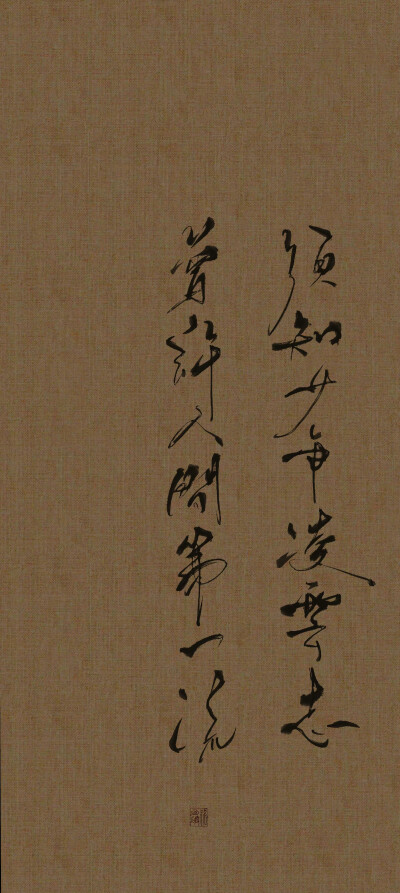 须知少年凌雲志
曾許人間第一流